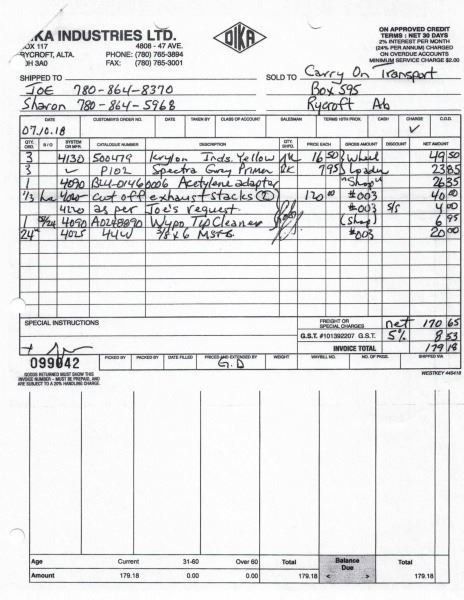 DIKA INDUSTRIES LTD.
DIKA
ON APPROVED CREDIT
TERMS: NET 30 DAYS
2% INTEREST PER MONTH
(24% PER ANNUM) CHARGED
ON OVERDUE ACCOUNTS
MINIMUM SERVICE CHARGE $2.00
BOX 117 4808 - 47 AVE.
RYCROFT, ALTA. PHONE: (780) 765-3894
T0H 3A0 FAX: (780) 765-3001
SHIPPED TO JOE 780-864-8370
Sharon 780-864-5968
SOLD TO Carry On Transport
Box 595
Rycroft Ab
DATE CUSTOMER'S ORDER NO. DATE TAKEN BY CLASS OF ACCOUNT SALESMAN TERMS 10TH PROX. CASH CHARGE C.O.D.
07.10.18 ✓
QTY. ORD. B/O SYSTEM OR MFR. CATALOGUE NUMBER DESCRIPTION QTY. SHPD. PRICE EACH GROSS AMOUNT DISCOUNT NET AMOUNT
3 4130 500479 Krylon Inds. Yellow 16 50 Wheel 49 50
3 ✓ P102 Spectra Gray Primer RK 7 95 Loader 23 85
1 4090 0006 Acetylene adaptor "Shop" 26 35
1/3 hr cut off exhaust stacks (2) 120 00 #003 40 00
4220 as per Joe's request. #003 S/S 4 00
1 4090 A0248890 Wypo Tip Cleaner (Shop) 6 95
24" 4025 44W 3/8 x 6 #003 20 00
SPECIAL INSTRUCTIONS FREIGHT OR SPECIAL CHARGES net 170 65
G.S.T. #101392207 G.S.T. 5% 8 53
INVOICE TOTAL 179 18
099042
PICKED BY PACKED BY DATE FILLED PRICED AND EXTENDED BY G.D WEIGHT WAYBILL NO. NO. OF PKGS. SHIPPED VIA
GOODS RETURNED MUST SHOW THIS
INVOICE NUMBER - MUST BE PREPAID, AND
ARE SUBJECT TO A 20% HANDLING CHARGE.
WESTKEY 445418
Age Current 31-60 Over 60 Total Balance Due Total
Amount 179.18 0.00 0.00 179.18 < > 179.18